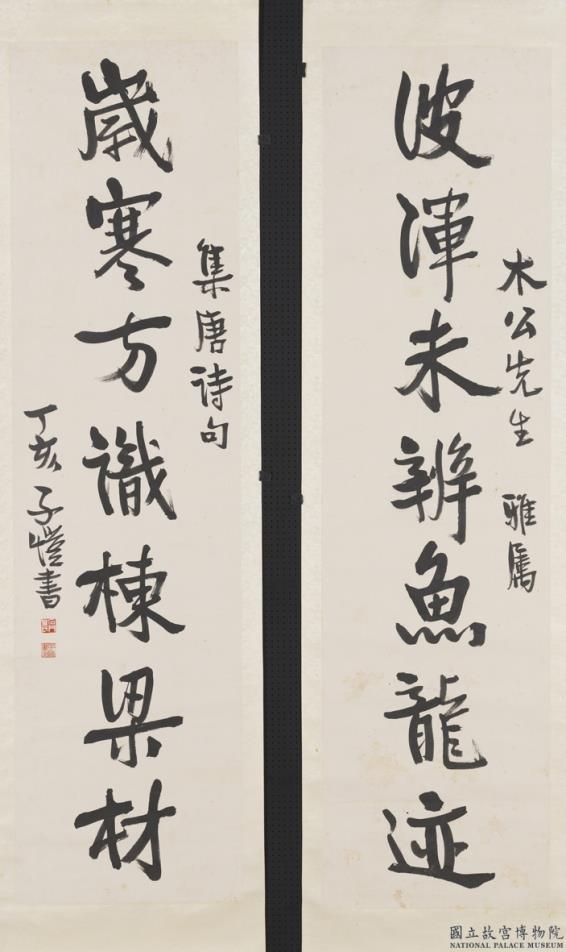 木公先生 雅属
波渾未辨魚龍迹
集唐诗句
歲寒方識棟梁材
丁亥 子愷書
國立故宮博物院
NATIONAL PALACE MUSEUM